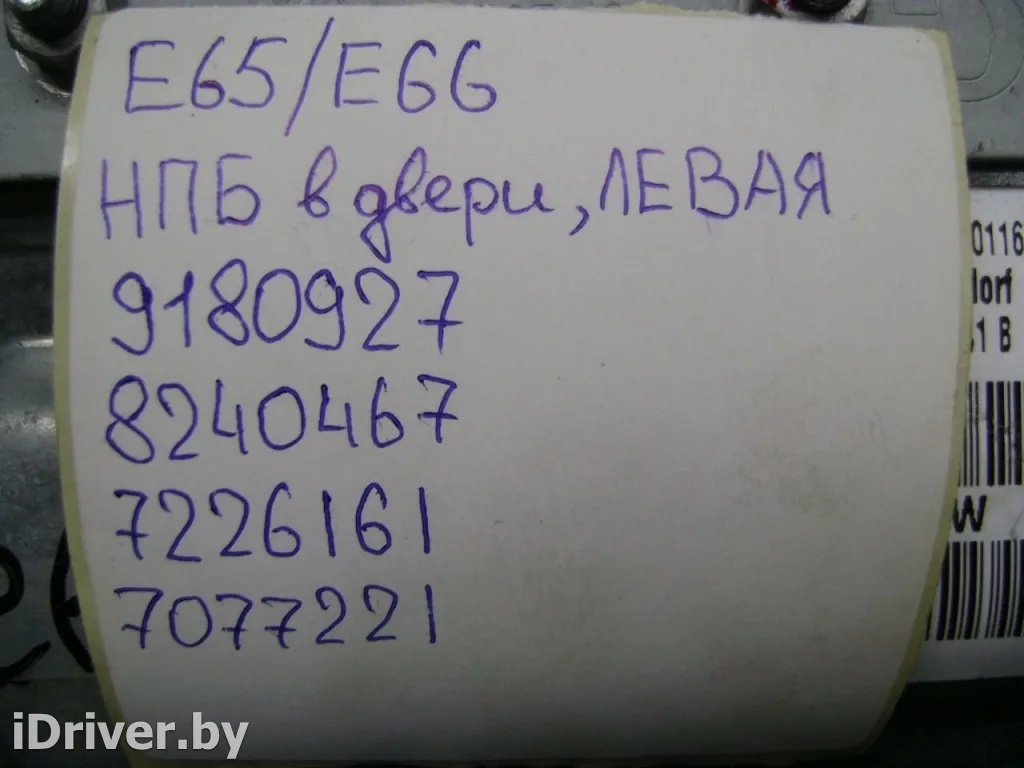 E65/E66
НПБ в двери, ЛЕВАЯ
9180927
8240467
7226161
7077221
0116
dorf
1 B
W
iDriver.by